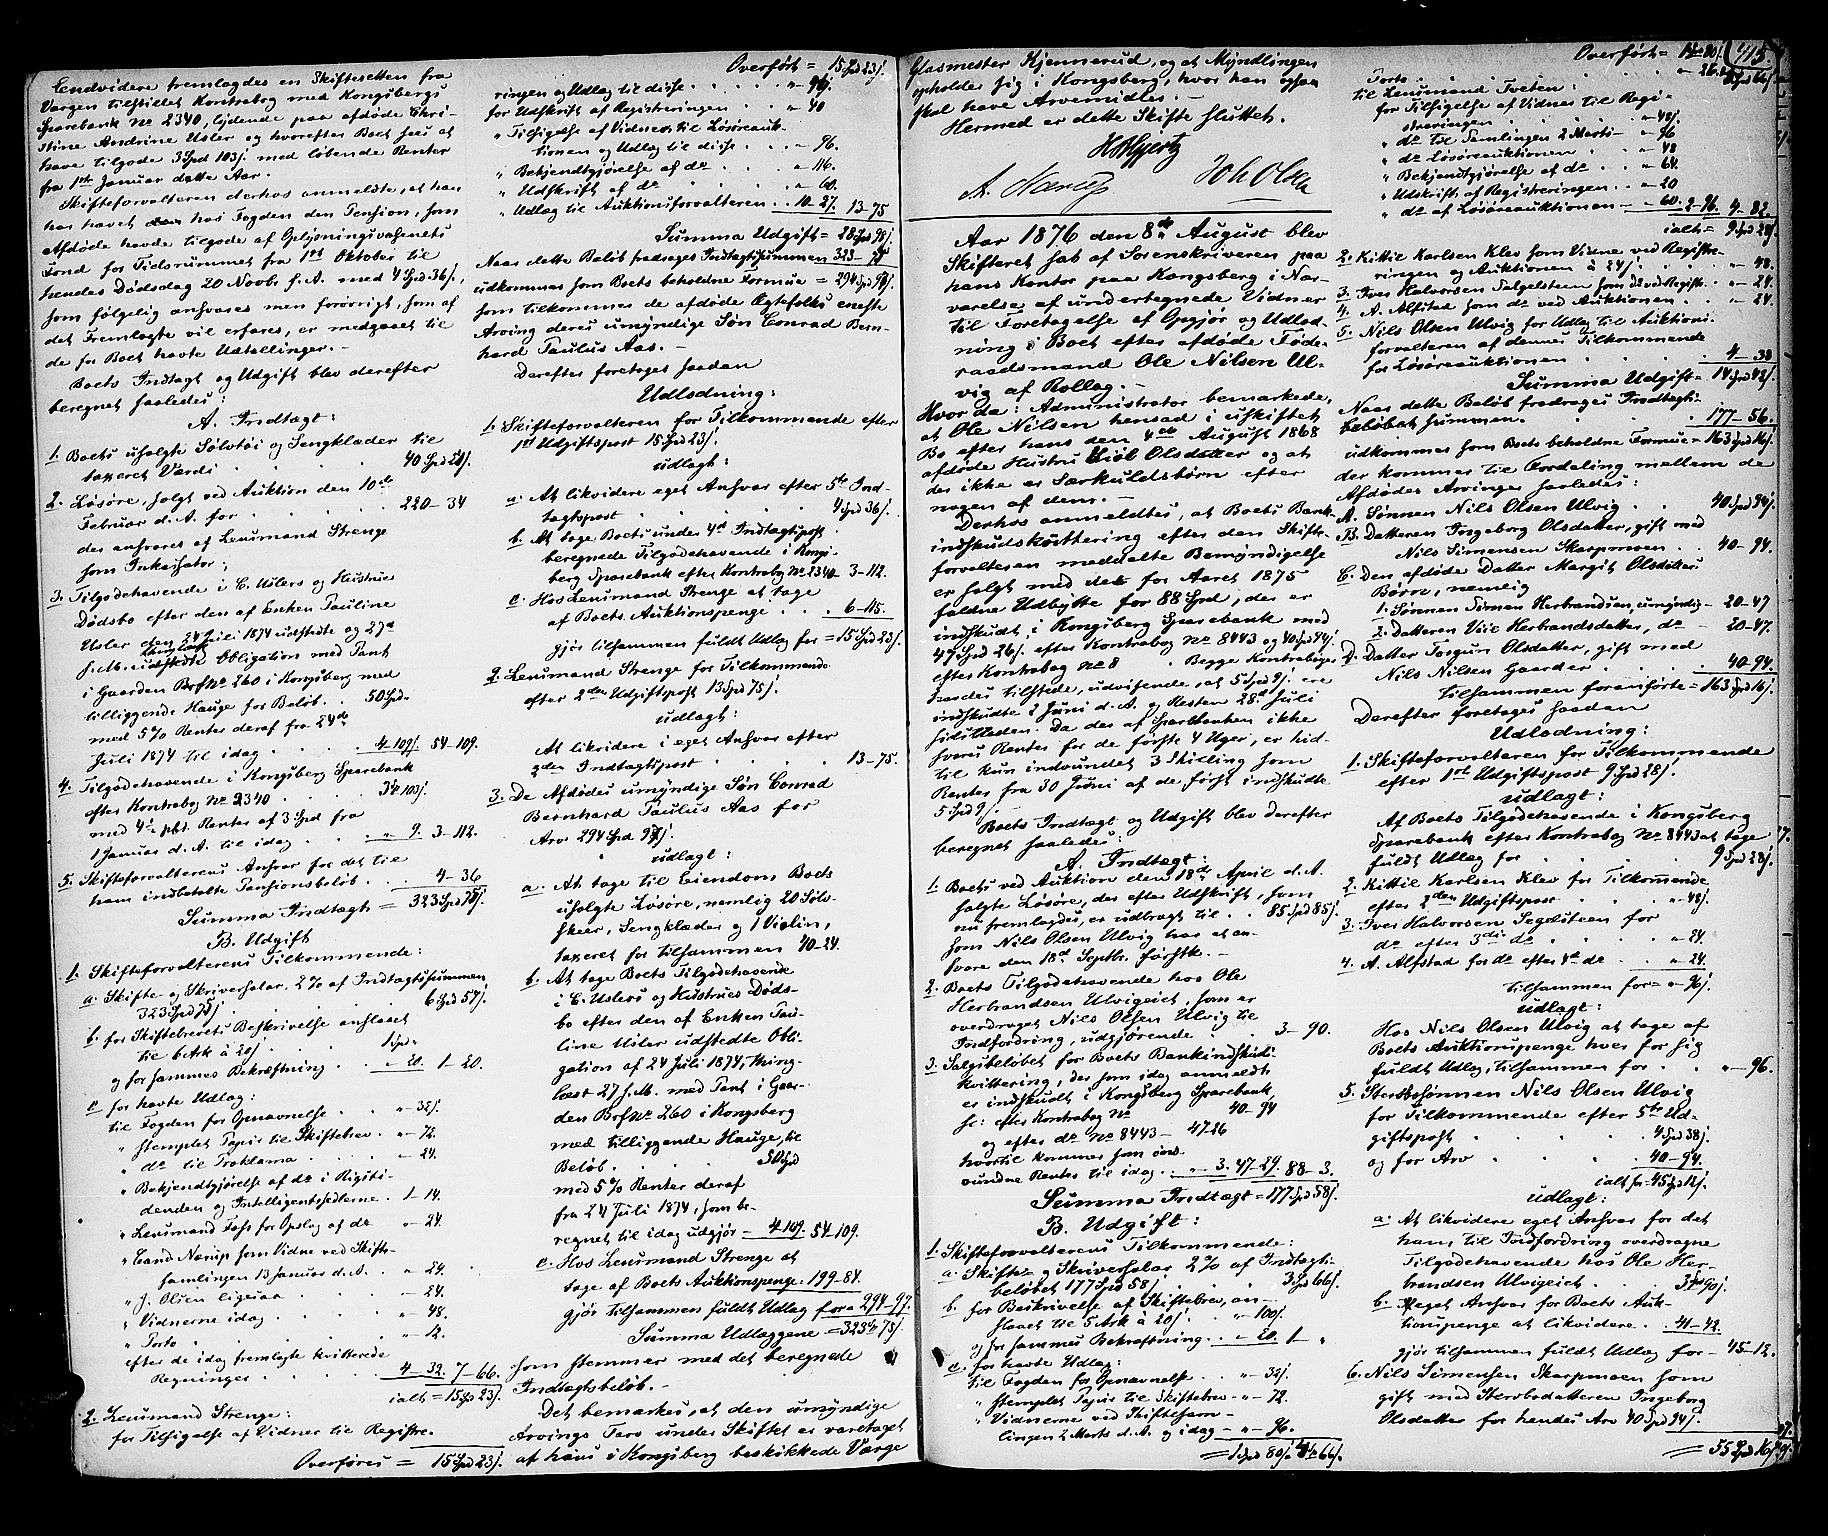 Endvidere fremlagdes en Skiftesetten fra
Værgen tilstillet Kontrabog med Kongsbergs
Sparebank No 2340, lydende paa afdøde Chri-
stine Andrine Usler og hvorefter Boet sees at
have tilgode 3 Spd 103 s. med løbende Renter
fra 1ste Januar dette Aar.
Skifteforvalteren derhos anmeldte, at han
har hævet hos Fogden den Pension, som
Afdøde havde tilgode af Oplysningsvæsenets
Fond for Tidsrummet fra 1ste Oktober til
hendes Dødsdag 20 Novb. f. A. med 4 Spd 36 s.,
som følgelig ansvares men forøvrigt, som af
det Fremlagte vil erfares, er medgaaet til
de for Boet havte Udtællinger. -
Boets Indtægt og Udgift blev derefter
beregnet saaledes:
A. Indtægt:
1. Boets usolgte Sølvtøi og Sengklæder til
taxeret Værdi . . . 40 Spd 24 s.
2. Løsøre, solgt ved Auktion den 10de
Februar d. A. for . . . 220 - 34
der ansvares af Lensmand Strenge
som Inkassator;
3. Tilgodehavende i C. Uslers og Hustrues
Dødsbo efter den af Enken Pauline
Usler den 24 Juli 1874 udstedte og 27de
s. M. thinglæste Obligation med Pant
i Gaarden Brf No 260 i Kongsberg med
tilliggende Hauge for Beløb . . 50 Spd -
med 5 % Renter deraf fra 24de
Juli 1874 til idag . . . 4 - 109 s. 54 - 109.
4. Tilgodehavende i Kongsberg Sparebank
efter Kontrabog No 2340 . . 3 Sp 103 s.
med 4 1/2 pCt. Renter af 3 Spd fra
1 Januar d. A. til idag . . . " 9. 3 - 112.
5. Skifteforvalterens Ansvar for det til
ham indbetalte Pensionsbeløb . . 4 - 36
Summa Indtægt = 323 Spd 75 s.
B. Udgift
1. Skifteforvalterens Tilkommende:
a. Skifte- og Skriversalær, 2 % af Indtægtssummen
323 Spd 75 s. . . . 6 Spd 57 s.
b. for Skiftebrevets Beskrivelse anslaaet
til 6 Ark à 20 s. . . 1 Spd -
og for sammes Bekræftning . . - 20. 1 - 20.
c for havte Udlæg:
til Fogden for Opnavnelse . . " - 32 s.
" stemplet Papir til Skiftebrev . " - 72.
" do til Proklama . . . " - 24.
" Bekjendtgjørelse af do i Rigsti-
denden og Intelligentssedlerne . 1 - 14.
" Lensmand Foss for Opslag af do " - 24.
" Cand Nærup som Vidne ved Skifts-
samlingen 13 Januar d. A. . . " - 24.
" J. Olsen ligesaa . . . " - 24.
" Vidnerne idag . . . " - 48.
" Porto . . . " - 12.
efter de idag fremlagte kvitterede
Regninger . . . 4 - 32. 7 - 66.
ialt = 15 Spd 23 s.
2. Lensmand Strenge:
for Tilsigelse af Vidner til Registre-
Overføres = 15 Spd 23 s.
Overført = 15 Spd 23 s.
ringen og Udlæg til disse . . . " 96 s.
for Udskrift af Registreringen . . " 40
" Tilsigelse af Vidner til Løsøreauk-
tionen og Udlæg til disse . . - 96.
" Bekjendtgjørelse af do . . . - 116.
" Udskrift af do . . . - 60.
" Udlæg til Auktionsforvalteren . . 10 - 27. 13 - 75
Summa Udgift = 28 Spd 98 s.
Naar dette Beløb fradrages Indtægtssummen 323 - 75
udkommer som Boets beholdne Formue = 294 Spd 97 s.
som tilkommer de afdøde Ægtefolks eneste
Arving deres umyndige Søn Conrad Bern-
hard Paulus Aas. -
Derefter foretoges saadan
Udlodning:
1. Skifteforvalteren for Tilkommende efter
1ste Udgiftspost 15 Spd 23 s.
udlagt:
a. At likvidere eget Ansvar efter 5te Ind-
tægtspost . . . 4 Spd 36 s.
b. At tage Boets under 4de Indtægtspost
beregnede Tilgodehavende i Kongs-
berg Sparebank efter Kontrabog No 2340 3 - 112.
c. Hos Lensmand Strenge at tage
af Boets Auktionspenge . . . 6 - 115.
gjør tilsammen fuldt Udlæg for = 15 Spd 23 s.
2. Lensmand Strenge for Tilkommende
efter 2den Udgiftspost 13 Spd 75 s.
udlagt:
At likvidere i eget Ansvar efter
2den Indtægtspost . . . 13 - 75.
3. De Afdødes umyndige Søn Conrad
Bernhard Paulus Aas for
Arv 294 Spd 97 s.
udlagt:
a. At tage til Eiendom Boets
usolgte Løsøre, nemlig 20 Sølv-
skeer, Sengklæder og 1 Violin,
taxeret for tilsammen 40 - 24.
b. At tage Boets Tilgodehavende
i C. Uslers og Hustrues Døds-
bo efter den af Enken Pau-
line Usler udstedte Obli-
gation af 24 Juli 1874, thing-
læst 27 s. M. med Pant i Gaar-
den Brf No 260 i Kongsberg
med tilliggende Hauge, til
Beløb . . . 50 Spd
med 5 % Renter deraf
fra 24 Juli 1874, som be-
regnet til idag udgjør - 4 109. 54 - 109.
c. Hos Lensmand Strenge at
tage af Boets Auktionspenge: 199 - 84.
gjør tilsammen fuldt Udlæg for = 294 - 97.
Summa Udlæggene = 323 Sp 75 s.
som stemmer med det beregnede
Indtægtsbeløb. -
Det bemærkes, at den umyndige
Arvings Tarv under Skiftet er varetaget
af hans i Kongsberg beskikkede Værge
Glasmester Kjennerud, og at Myndlingen
opholder sig i Kongsberg, hvor han ogsaa
skal have Arvemidler. -
Hermed er dette Skifte sluttet.
H Hjort
A. Nærup Joh Olsen
Aar 1876 den 8de August blev
Skifteret sat af Sorenskriveren paa
hans Kontor paa Kongsberg i Nær-
værelse af undertegnede Vidner
til Foretagelse af Opgjør og Udlod-
ning i Boet efter afdøde Føde-
raadsmand Ole Nilsen Ul-
vig af Rollag. -
Hvor da: Administrator bemærkede,
at Ole Nilsen hensad i uskiftet
Bo efter hans den 4de August 1868
afdøde Hustru Liøl Olsdatter og at
der ikke er Særkuldsbørn efter
nogen af dem. -
Derhos anmeldtes, at Boets Bank-
indskudskvittering efter den Skifte-
forvalteren meddelte Bemyndigelse
er solgt med det for Aaret 1875
faldne Udbytte for 88 Spd, der er
indskudt i Kongsberg Sparebank med
47 Spd 26 s. efter Kontrabog No 8443 og 40 Spd 94 s.
efter Kontrabog No 8 . Begge Kontrabøger
havdes tilstede, udvisende, at 5 Spd 9 s. ere
indskudte i Juni d. A. og Resten 28de Juli
sidstleden. Da der af Sparebanken ikke
svares Renter for de første 4 Uger, er hid-
til kun indvundet 3 Skilling som
Renter fra 30 Juni af de først indskudte
5 Spd 9 s.
Boets Indtægt og Udgift blev derefter
beregnet saaledes:
A. Indtægt:
1. Boets ved Auktion den 18de April d. A.
solgte Løsøre, der efter Udskrift, som
nu fremlagdes, er udbragt til . . 85 Spd 85 s.
som Nils Olsen Ulvig har at an-
svare den 18de Septbr. førstk. -
2. Boets Tilgodehavende hos Ole
Herbrandsen Ulvigeiet, som er
overdraget Nils Olsen Ulvig til
Indfordring, udgjørende . . 3 - 90.
3. Salgsbeløbet for Boets Bankindskuds-
kvittering, der som idag anmeldt
er indskudt i Kongsberg Sparebank,
sc: efter Kontrabog No 40 - 94
og efter do No 8443 - 47 26
hvortil kommer som ind-
vundne Renter til idag . . " - 3. 47 - 29. 88 - 3.
Summa Indtægt = 177 Spd 58 s.
B. Udgift:
1. Skifteforvalterens Tilkommende:
a. Skifte- og Skriversalær 2 % af Indtægts-
beløbet 177 Spd 58 s. . . . 3 Spd 66 s.
b. for Beskrivelse af Skiftebrev, an-
slaaet til 5 Ark à 20 s. . " 100 s.
og for sammes Bekræftning . . " 20. 1 "
c. for havte Udlæg:
til Fogden for Opnavnelse . . " - 32 s.
" stemplet Papir til Skiftebrev - " - 72.
" Vidnerne ved Skiftesam-
lingen 2 Marts d. A. og idag - " - 96.
= 1 Spd 80 s. 4 Sp 66 s.
415.
Overført = 1 Sp 80 s. 4 Spd 66 s.
Porto . . . " 26.
til Lensmand Tveten:
for Tilsigelse af Vidner til Regi-
streringen . . . " 48 s.
" do til Samlingen 2 Marts - " 96
" do Løsøreauktionen . . - " 48
" Bekjendtgjørelse af do . . - " 64.
" Udskrift af Registreringen . . - " 20
" do af Løsøreauktionen - - " 60. 2 - 96. 4 - 82.
ialt = 9 Spd 28 s.
2. Kittil Karlsen Klev som Vidne ved Registre-
ringen og Auktionen à 24 s. . . . " - 48.
3. Iver Halvorsen Sælgelsteen som do ved Registr. . " - 24.
4. A. Alfstad som do ved Auktionen . . " - 24.
5. Nils Olsen Ulvig for Udlæg til Auktions-
forvalteren af dennes Tilkommende
for Løsøreauktionen . . . 4 - 38
Summa Udgift = 14 Spd 42 s.
Naar dette Beløb fradrages Indtægts-
beløbet summen . . . 177 - 56.
udkommer som Boets beholdne Formue = 163 Spd 16 s.
der kommer til Fordeling mellem de
Afdødes Arvinger saaledes:
A. Sønnen Nils Olsen Ulvig . . 40 Spd 94 s.
B. Datteren Ingeborg Olsdatter, gift med
Nils Simensen Skarpmoen . . 40 - 94.
C. Den afdøde Datter Margit Olsdatters
Børn, nemlig
1. Sønnen Simen Herbrandsen, umyndig - 20 - 47
2. Datteren Viil Herbrandsdatter, do - 20 - 47.
D. Datter Torgun Olsdatter, gift med
Nils Nilsen Gaarder . . . 40 - 94.
tilsammen foranførte = 163 Spd 16 s.
Derefter foretoges saadan
Udlodning:
1. Skifteforvalteren for Tilkommende
efter 1ste Udgiftspost 9 Spd 28 s.
udlagt:
Af Boets Tilgodehavende i Kongsberg
Sparebank efter Kontrabog No 8443 at tage
fuldt Udlæg for . . . 9 Spd 28 s.
2. Kittil Karlsen Klev for Tilkommende
efter 2den Udgiftspost . . . " 48 s.
3. Iver Halvorsen Segelsteen for
do efter 3die do . . . " 24.
4. A. Alfstad for do efter 4de do . . " 24.
tilsammen for = " - 96 s.
udlagt:
Hos Nils Olsen Ulvig at tage af
Boets Auktionspenge hver for sig
fuldt Udlæg, tilsammen for . . " - 96.
5. Sterbsønnen Nils Olsen Ulvig
for Tilkommende efter 5te Ud-
giftspost . . . 4 Spd 38 s.
og for Arv . . . 40 - 94.
ialt for - 45 Spd 12 s.
udlagt:
a. At likvidere eget Ansvar for det
ham, til Indfordring overdragne
Tilgodehavende hos Ole Her-
brandsen Ulvigeiet . . 3 Spd 90 s.
b. I eget Ansvar for Boets Auk-
tionspenge at likvidere . . 41 - 42.
gjør tilsammen fuldt Udlæg for - 45 - 12.
6. Nils Simensen Skarpmoen som
gift med Sterbdatteren Ingeborg
Olsdatter for hendes Arv 40 Spd 94 s.
= 55 Spd 16 s.